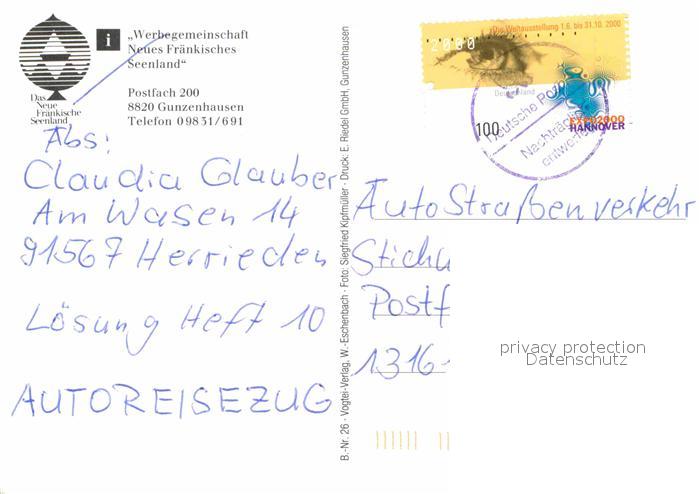 „Werbegemeinschaft
Neues Fränkisches
Seenland“
Postfach 200
8820 Gunzenhausen
Telefon 0 98 31 / 6 91
i
Das
Neue
Fränkische
Seenland
Abs:
Claudia Glauber
Am Wasen 14
91567 Herrieden
Lösung Heft 10
AUTOREISEZUG
B.-Nr. 26 - Vogtei-Verlag, W.-Eschenbach - Foto: Siegfried Kipfmüller - Druck: E. Riedel GmbH, Gunzenhausen
Die Weltausstellung 1.6. bis 31.10. 2000
2000
Deutschland
100
EXPO2000
HANNOVER
Deutsche Post
Nachträglich
entwertet
AutoStraßenverkehr
Stichw
Postf
1316-
privacy protection
Datenschutz